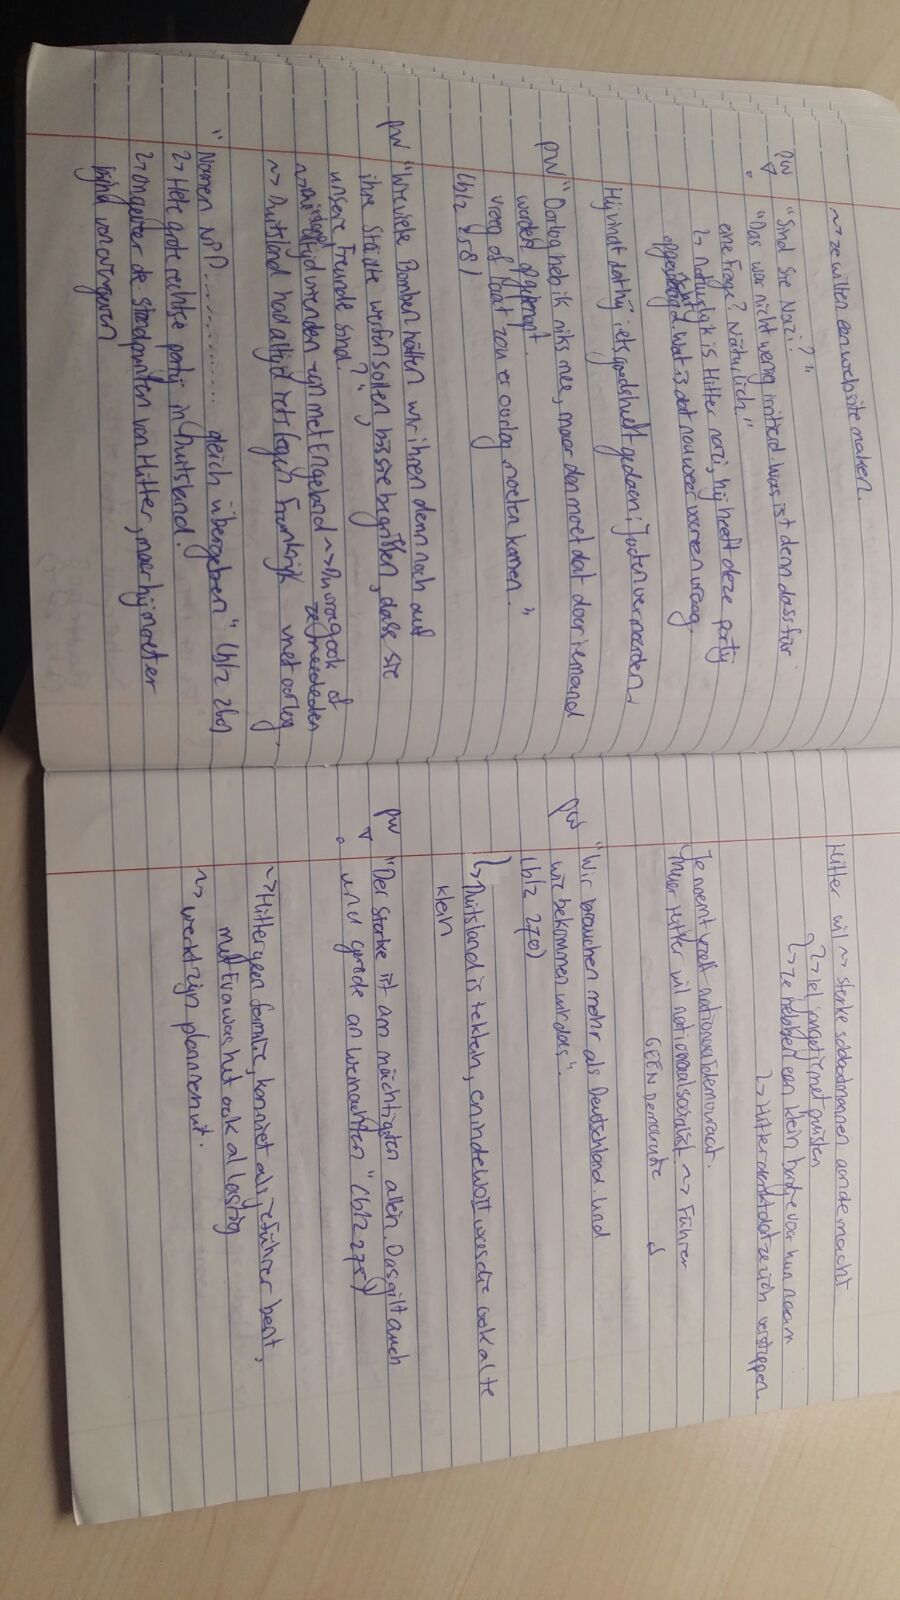 ~> ze willen een website maken.
pw "Sind Sie Nazi?"
"Das war nicht wenig irritierd. Was ist denn dass für
eine Frage? Nätürlich"
↳ Natuurlijk is Hitler nazi, hij heeft deze partij
opgericht. Wat is dat nou weer voor een vraag.
Hij vindt dat hij iets goeds heeft gedaan; Joden vermoorden.
pw "Oorlog heb ik niks mee, maar dan moet dat door iemand
worden opgeknapt.
vroeg of laat zou er oorlog moeten komen."
(blz 258)
pw "Wieviele Bomben hätten wir ihnen denn noch auf
ihre Städte werfen sollen, bis sie begriffen, dass sie
unsere Freunde sind?"
~> altijd vrienden zijn met Engeland ~> Du vroeg ook of
ze meededen
~> Duitsland had altijd iets tegen Frankrijk met oorlog.
"Namen NPD.............. gleich übergeben" (blz 260)
↳ Hele grote rechtse partij in Duitsland.
↳ ongeveer de standpunten van Hitler, maar hij moet er
bijna van overgeven
Hitler wil ~> sterke soldaatmannen aan de macht
↳ iel jongetje met puisten
↳ ze hebben een klein bandje voor hun naam
↳ Hitler denkt dat ze zich verstoppen.
Je noemt jezelf nationaaldemocraat.
maar Hitler wil nationaalsocialist ~> Führer
GEEN Democratie
pw "Wir brauchen mehr als Deutschland. Und
wir bekommen wir das".
(blz 270)
↳ Duitsland is te klein, en in de WOII was die ook al te
klein
pw "Der Starke ist am mächtigsten allein. Das gilt auch
und gerade an Weinachten" (blz 275)
~> Hitler geen familie, kan niet als je Führer bent,
met Eva was het ook al lastig
~> werkt zijn plannen uit.